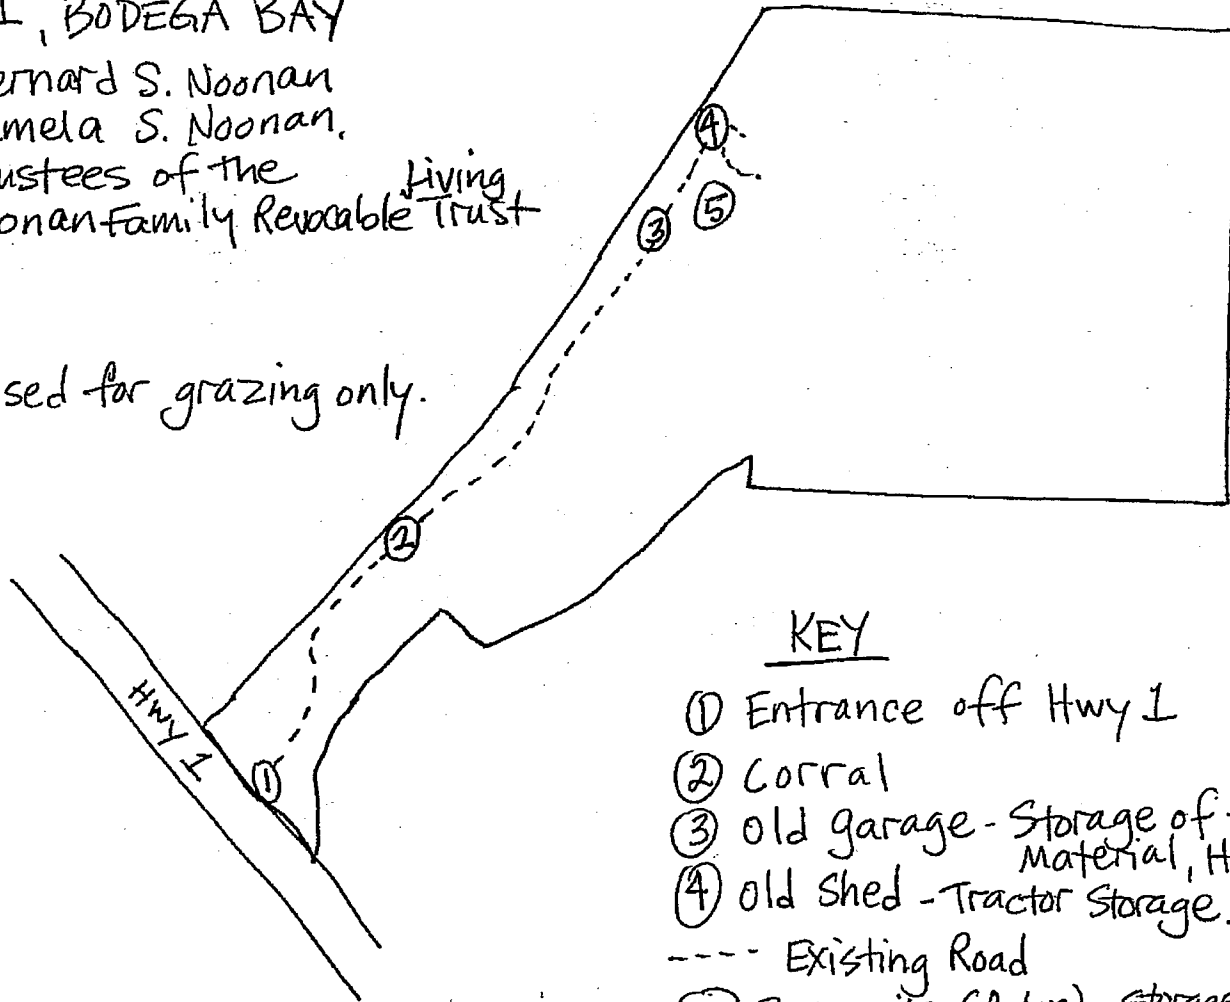 1, BODEGA BAY
ernard S. Noonan
mela S. Noonan,
ustees of the Living
onan Family Revocable Trust
sed for grazing only.
4
5
3
2
1
Hwy 1
KEY
① Entrance off Hwy 1
② Corral
③ old garage - Storage of
Material, H
④ old shed - Tractor Storage.
---- Existing Road